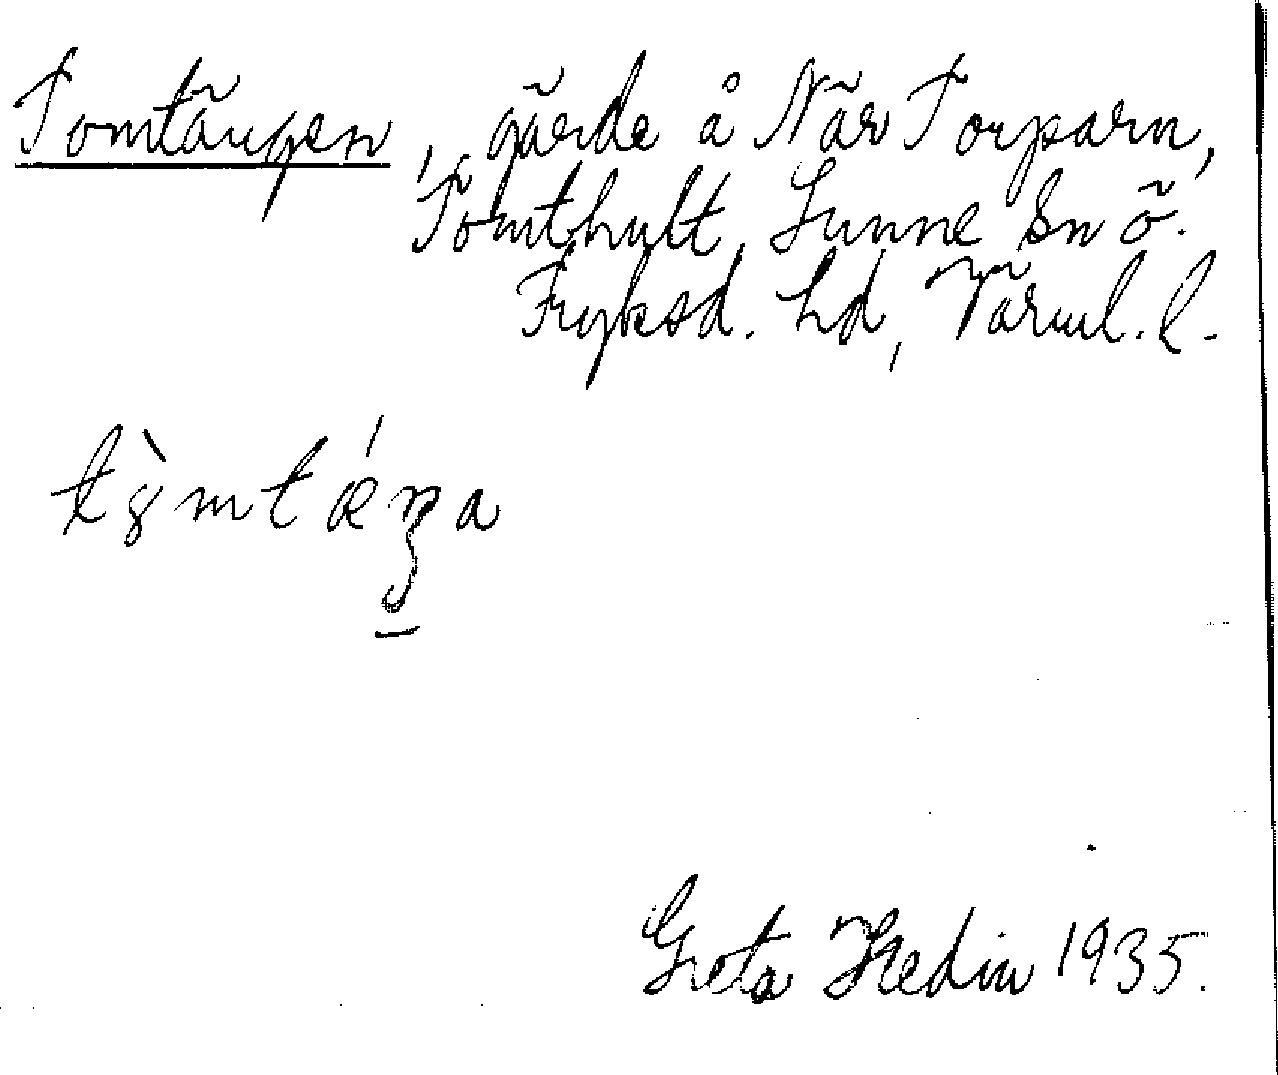 Tomtängen, gärde å När Torparn,
Tömthult, Sunne sn ö.
Fryksd. hd, Värml. l.
Greta Hedin 1935.